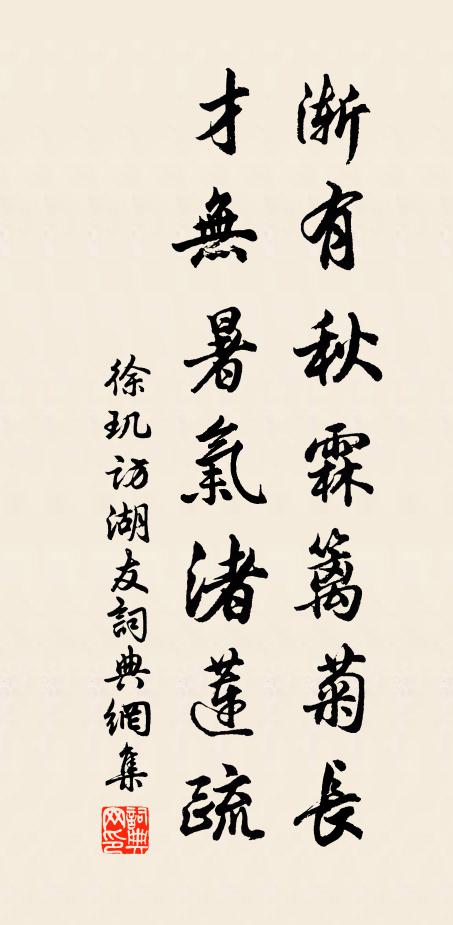 漸有秋霖籬菊長
才無暑氣渚蓮疏
徐玑訪湖友詞典網集
詞典网印